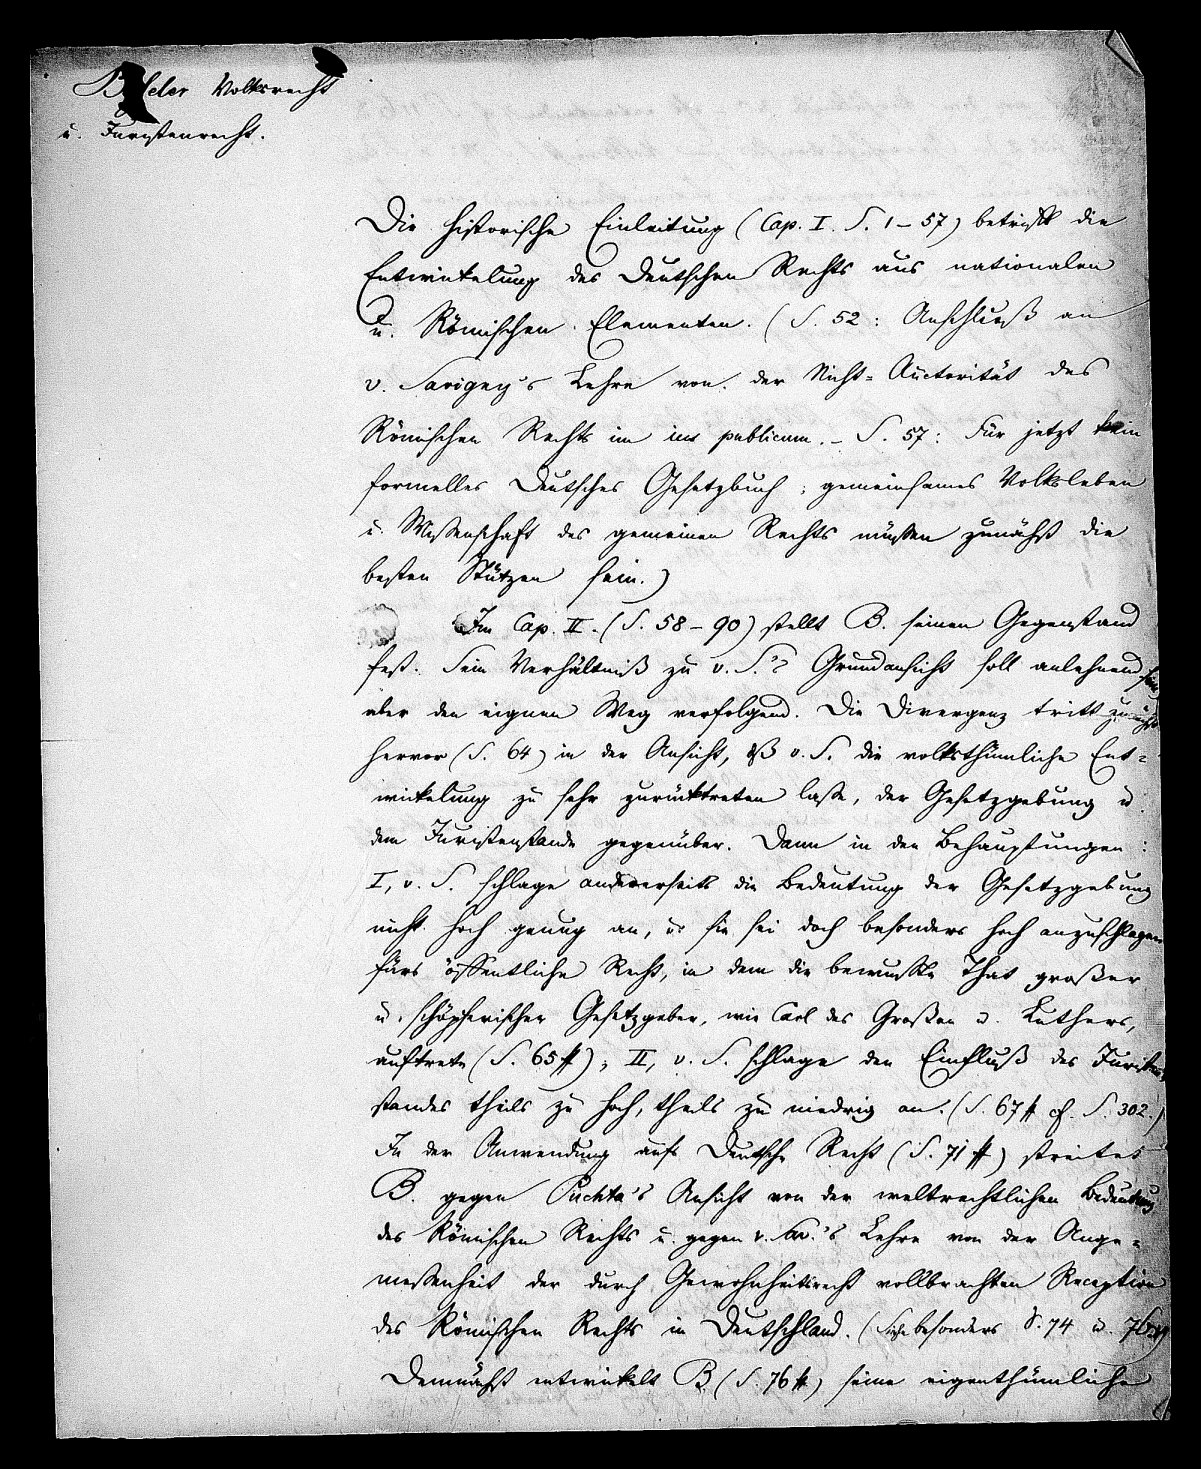 Beseler Volksrecht
u. Juristenrecht.
Die historische Einleitung (Cap. I. S. 1–57) betrifft die
Entwickelung des Deutschen Rechts aus nationalen
u. Römischen Elementen. (S. 52: Anschluß an
v. Savigny's Lehre von der Nicht-Auctorität des
Römischen Rechts im ius publicum. – S. 57: Für jetzt kein
formelles Deutsches Gesetzbuch; gemeinsames Volksleben
u. Wissenschaft des gemeinen Rechts müssen zunächst die
besten Stützen sein.)
Im Cap. II. (S. 58–90) stellt B. seinen Gegenstand
fest. Sein Verhältniß zu v. S.'s Grundansicht soll anlehnend sein
aber den eignen Weg verfolgend. Die Divergenz tritt zunächst
hervor (S. 64) in der Ansicht, daß v. S. die volksthümliche Ent=
wickelung zu sehr zurücktreten lasse, der Gesetzgebung u.
dem Juristenstande gegenüber. Dann in den Behauptungen:
I, v. S. schlage andererseits die Bedeutung der Gesetzgebung
nicht hoch genug an, u. sie sei doch besonders hoch anzuschlagen
fürs öffentliche Recht, in dem die bewußte That großer
u. schöpferischer Gesetzgeber, wie Carl des Großen u. Luthers,
auftrete (S. 65 ff); II, v. S. schlage den Einfluß des Juristen
standes theils zu hoch, theils zu niedrig an. (S. 67 ff cf. S. 302.)
In der Anwendung aufs Deutsche Recht (S. 71 ff) streitet
B. gegen Puchta's Ansicht von der weltrechtlichen Bedeutung
des Römischen Rechts u. gegen v. Sav.'s Lehre von der Ange=
messenheit der durch Gewohnheitsrecht vollbrachten Reception
des Römischen Rechts in Deutschland. (Siehe besonders S. 74 u.
Demnächst entwickelt B. (S. 76 ff) seine eigenthümliche